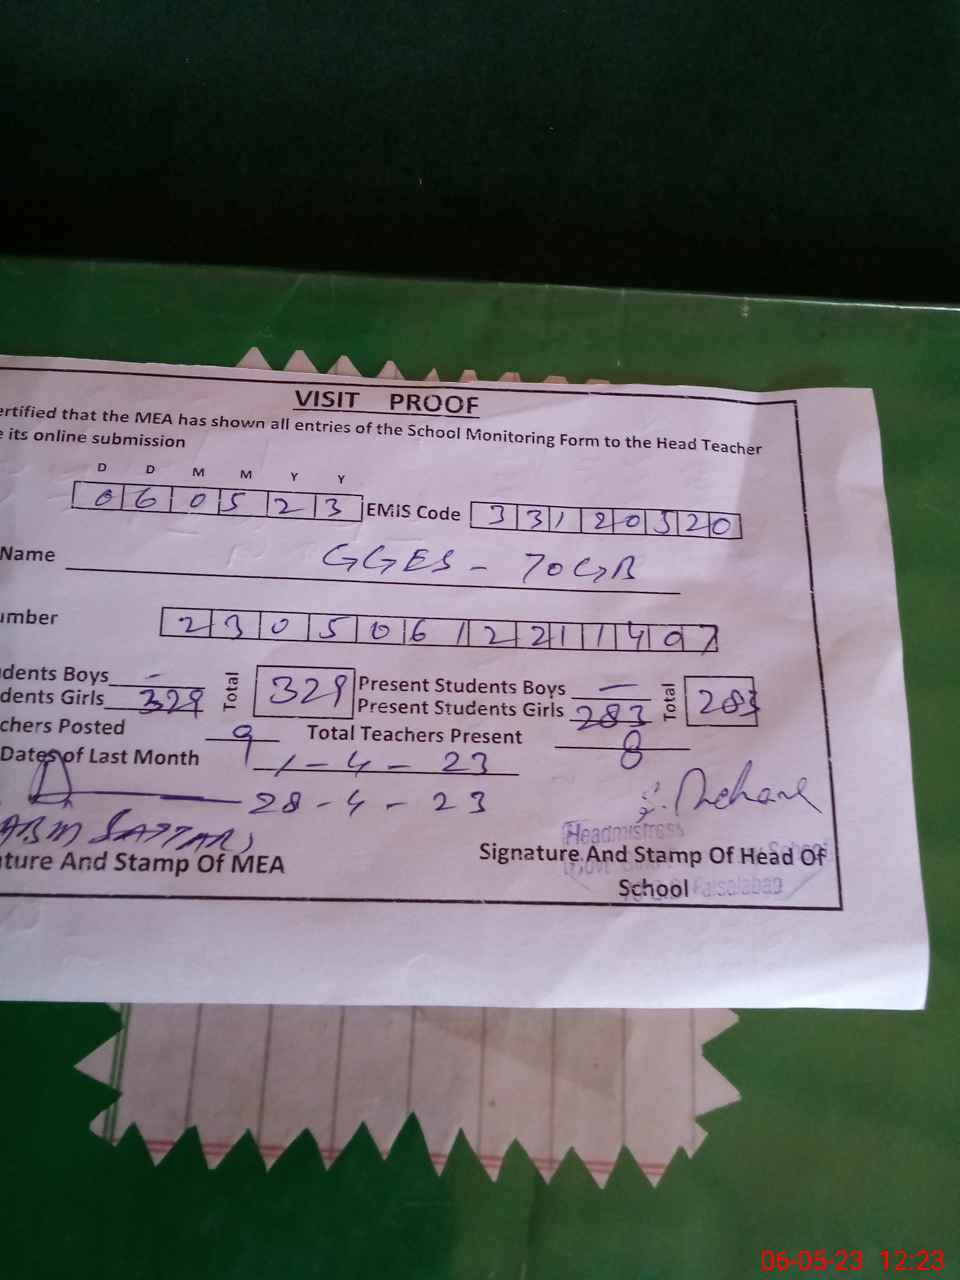 VISIT PROOF
ertified that the MEA has shown all entries of the School Monitoring Form to the Head Teacher
e its online submission
D D M M Y Y
060523 EMIS Code 33120520
Name GGES - 70GB
umber 23050612211407
dents Boys - Total 329 Present Students Boys - Total 283
dents Girls 329 Present Students Girls 283
chers Posted 9 Total Teachers Present 8
Dates of Last Month 1-4-23
28-4-23
SATTAR
Headmistress
ture And Stamp Of MEA Signature And Stamp Of Head Of
School Faisalabad
06-05-23 12:23